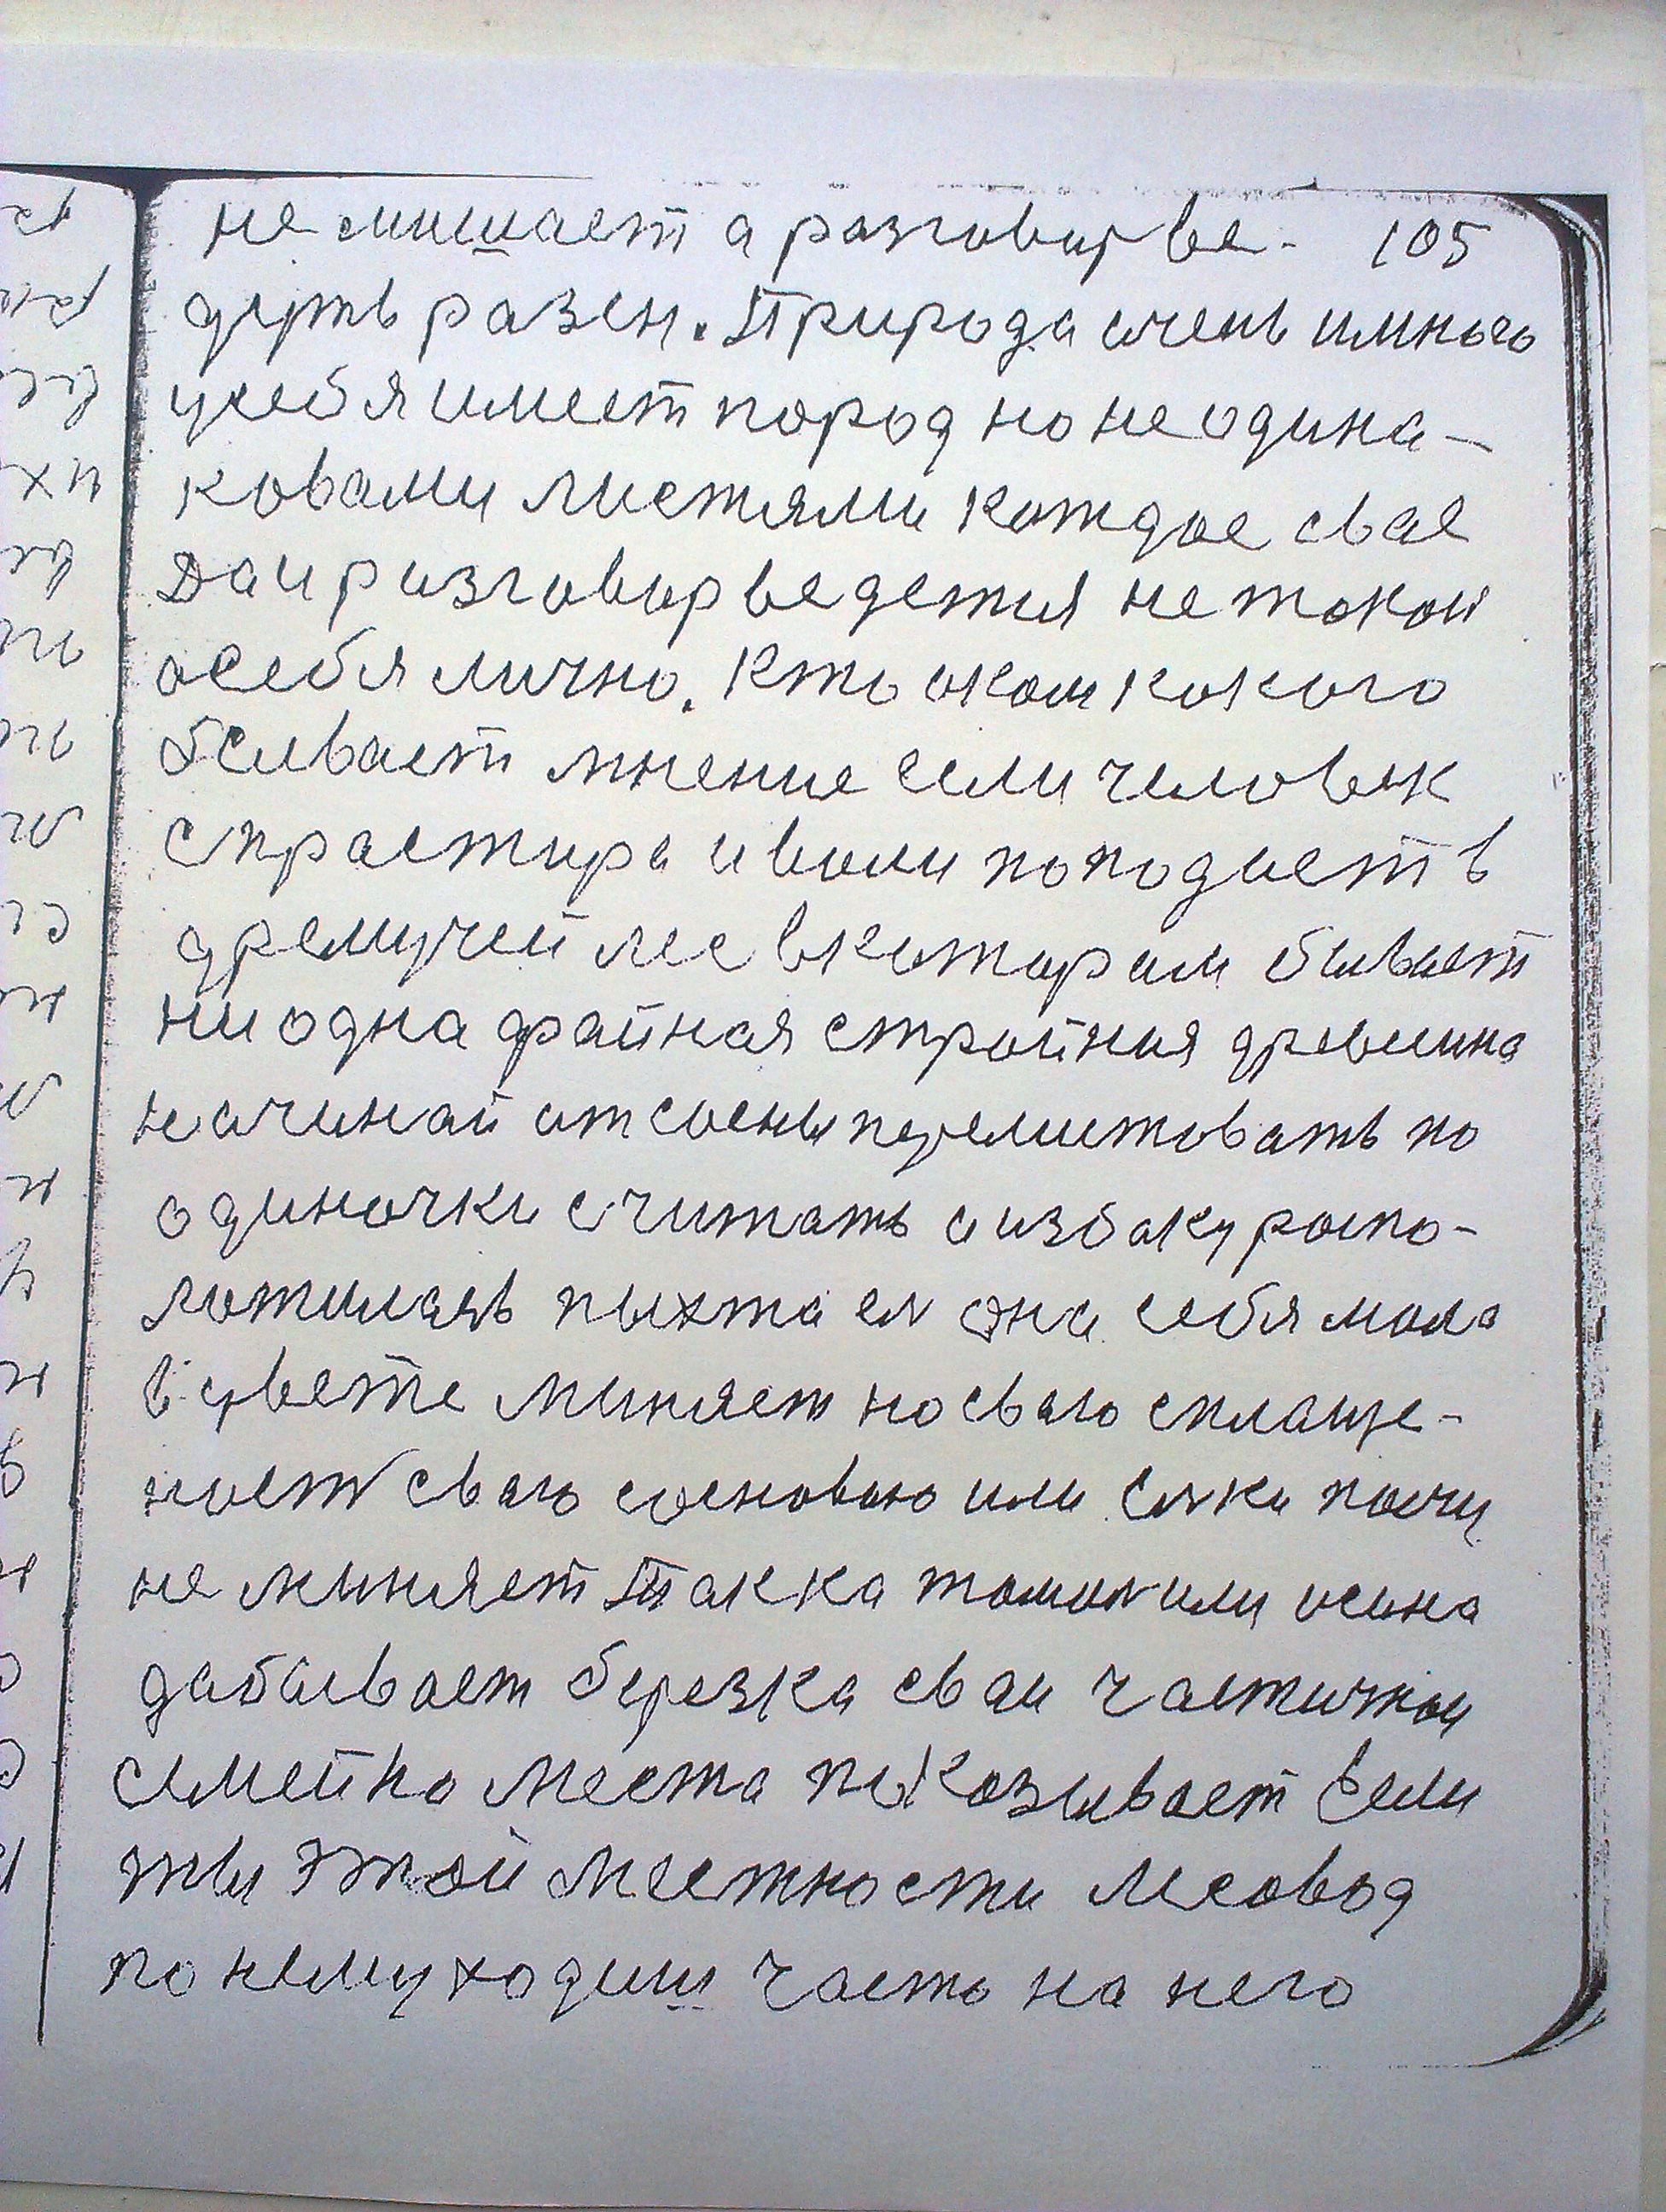 не мишает а разговор ве- 105
дерть разен. Природа очень и много
у себя имеет пород но не одина-
ковами листями кождое свае
Да и разговор ведетия не токой
о себя лично. Кто о ком кокого
бывает мнение если человек
с прастира и воли поподает в
дремучей лес в котором бывает
ни одна файная стройная древшина
начинай от сосны перелистовать по
одиночки считать а из боку роспо-
ложилась пыхта ел она себя мала
в цвете миняет но сваго сплаще-
ност сваго сосноваю или елки почи
не миняет Так ка тополи или осина
дабавает березка сваи частички
семейно места показывает Если
ты этой местности лесовод
по нему ходиш часто на него